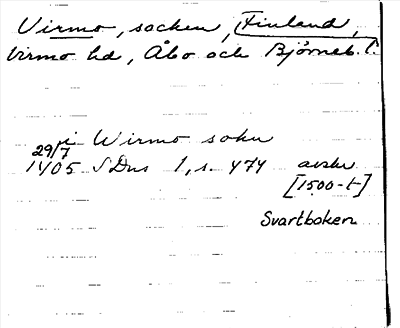 Virmo, socken, Finland,
Virmo hd, Åbo och Björneb. l.
i Wirmo sokn
29/7
1405 SDns 1, s. 474 avskr
[1500-t]
Svartboken